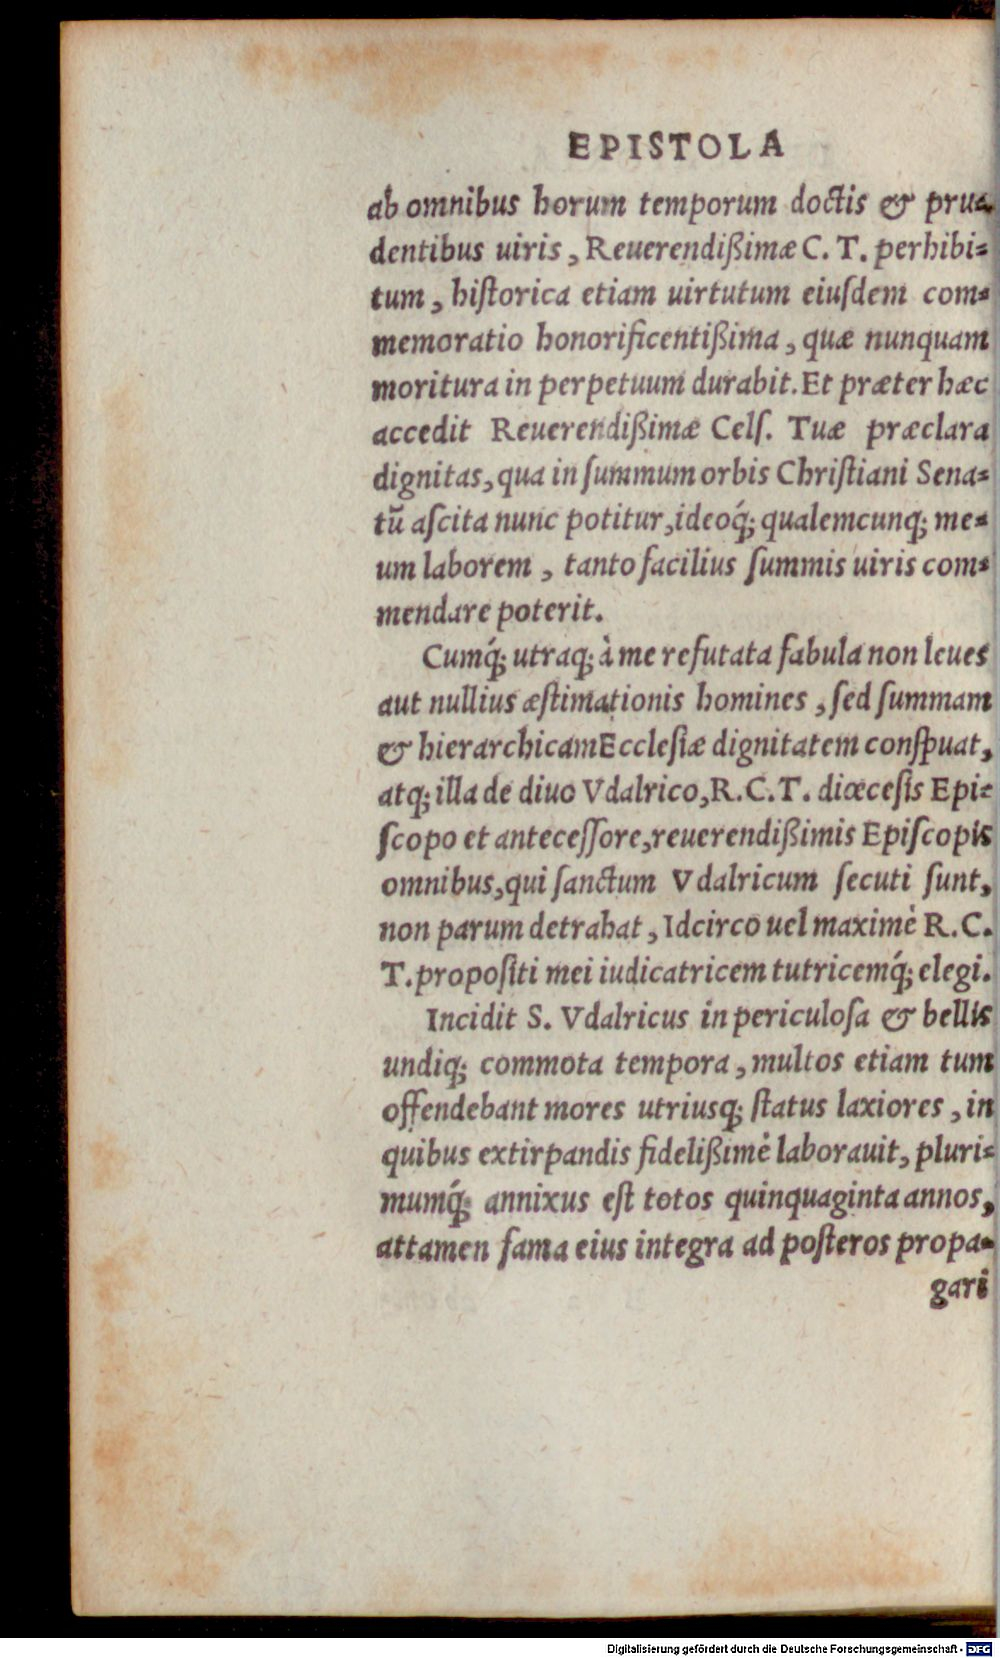 EPISTOLA
ab omnibus horum temporum doctis & pru=
dentibus uiris, Reuerendißimæ C. T. perhibi=
tum, hiſtorica etiam uirtutum eiuſdem com=
memoratio honorificentißima, quæ nunquam
moritura in perpetuum durabit. Et præter hæc
accedit Reuerendißimæ Celſ. Tuæ præclara
dignitas, qua in ſummum orbis Chriſtiani Sena=
tũ aſcita nunc potitur, ideoq́; qualemcunq; me=
um laborem, tanto facilius ſummis uiris com=
mendare poterit.
Cumq́; utraq; à me refutata fabula non leues
aut nullius æſtimationis homines, ſed ſummam
& hierarchicam Eccleſiæ dignitatem conſpuat,
atq; illa de diuo Vdalrico, R. C. T. diœceſis Epi=
ſcopo et anteceſſore, reuerendißimis Epiſcopis
omnibus, qui ſanctum Vdalricum ſecuti ſunt,
non parum detrahat, Idcirco uel maximè R. C.
T. propoſiti mei iudicatricem tutricemq́; elegi.
Incidit S. Vdalricus in periculoſa & bellis
undiq; commota tempora, multos etiam tum
offendebant mores utriusq; ſtatus laxiores, in
quibus extirpandis fidelißimè laborauit, pluri=
mumq́; annixus eſt totos quinquaginta annos,
attamen fama eius integra ad poſteros propa=
gari
Digitalisierung gefördert durch die Deutsche Forschungsgemeinschaft - DFG